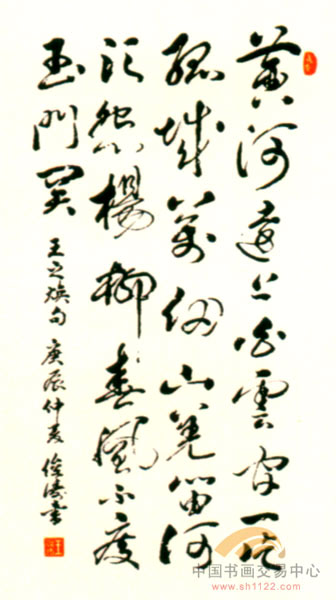 黄河遠上白雲间一片
孤城萬仞山羌笛何
须怨楊柳春風不度
玉门関
王之焕句 庚辰仲夏 俊涛書
中国书画交易中心
www.sh1122.com